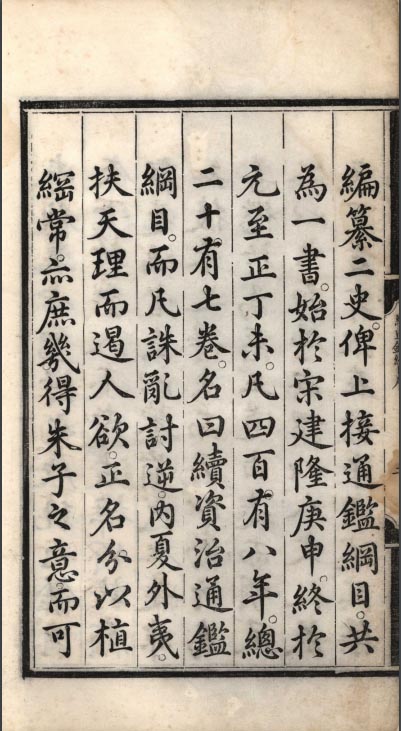 編纂二史。俾上接通鑑綱目。共
為一書。始於宋建隆庚申。終於
元至正丁未。凡四百有八年。總
二十有七卷。名曰續資治通鑑
綱目。而凡誅亂討逆。內夏外夷。
扶天理而遏人欲。正名分以植
綱常。亦庶幾得朱子之意。而可